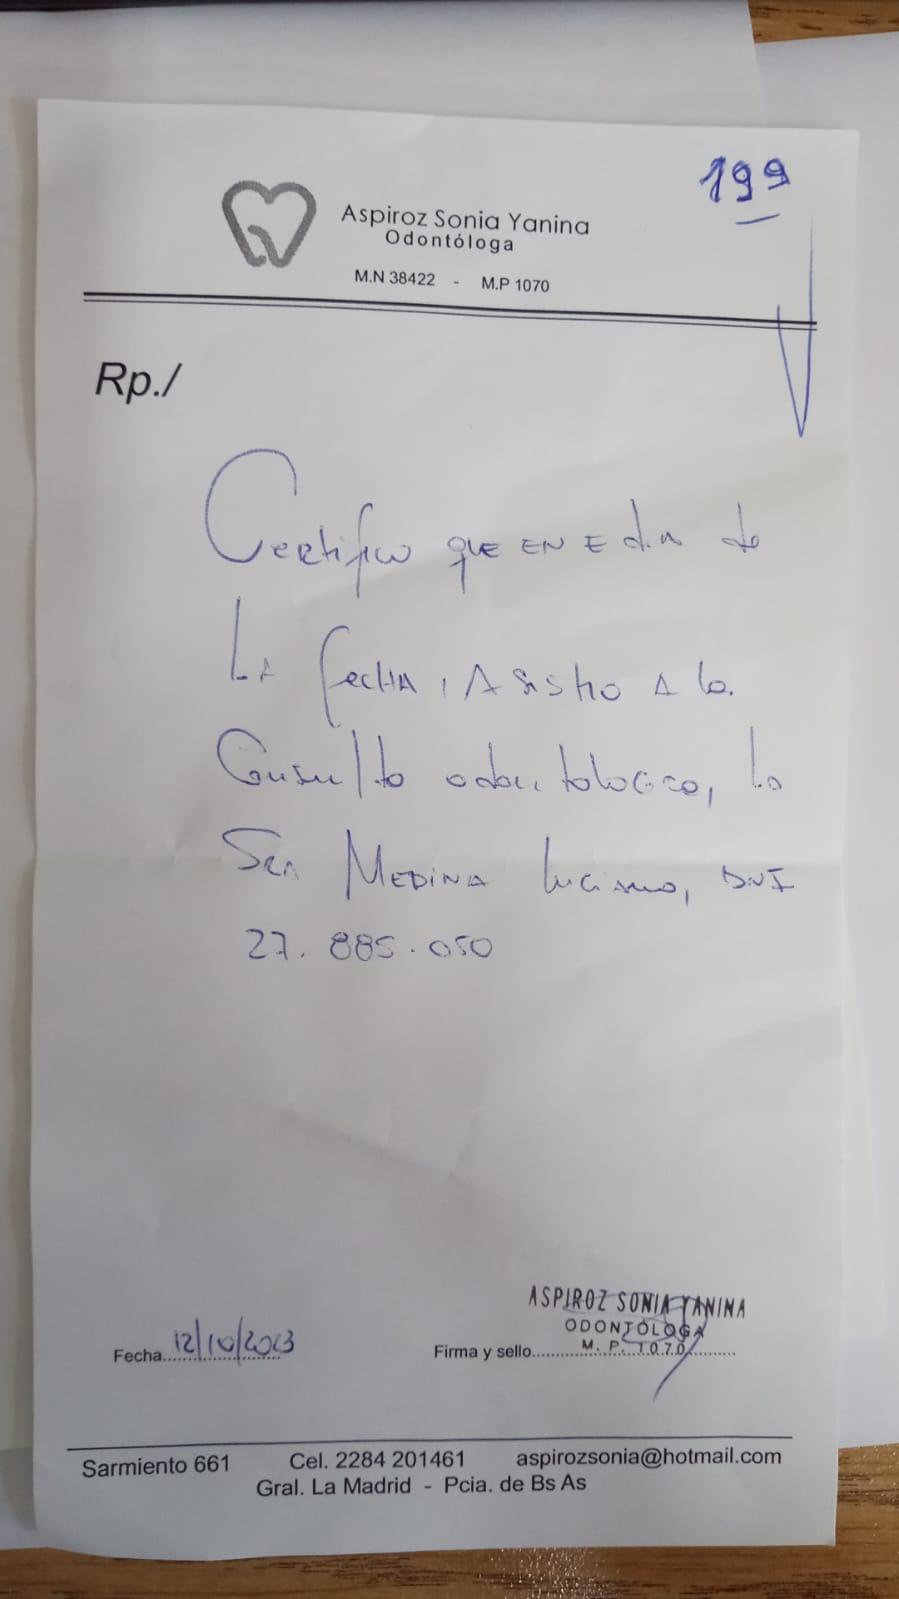 199
Aspiroz Sonia Yanina
Odontóloga
M.N 38422 - M.P 1070
Rp./
Certifico que EN E dia de
LA fecha, Asistio A la
Consulta odontologica, la
Sra MEDINA Luciana, DNI
27.885.050
ASPIROZ SONIA YANINA
ODONTÓLOGA
M. P. 1070
Fecha 12/10/2023 Firma y sello
Sarmiento 661 Cel. 2284 201461 aspirozsonia@hotmail.com
Gral. La Madrid - Pcia. de Bs As